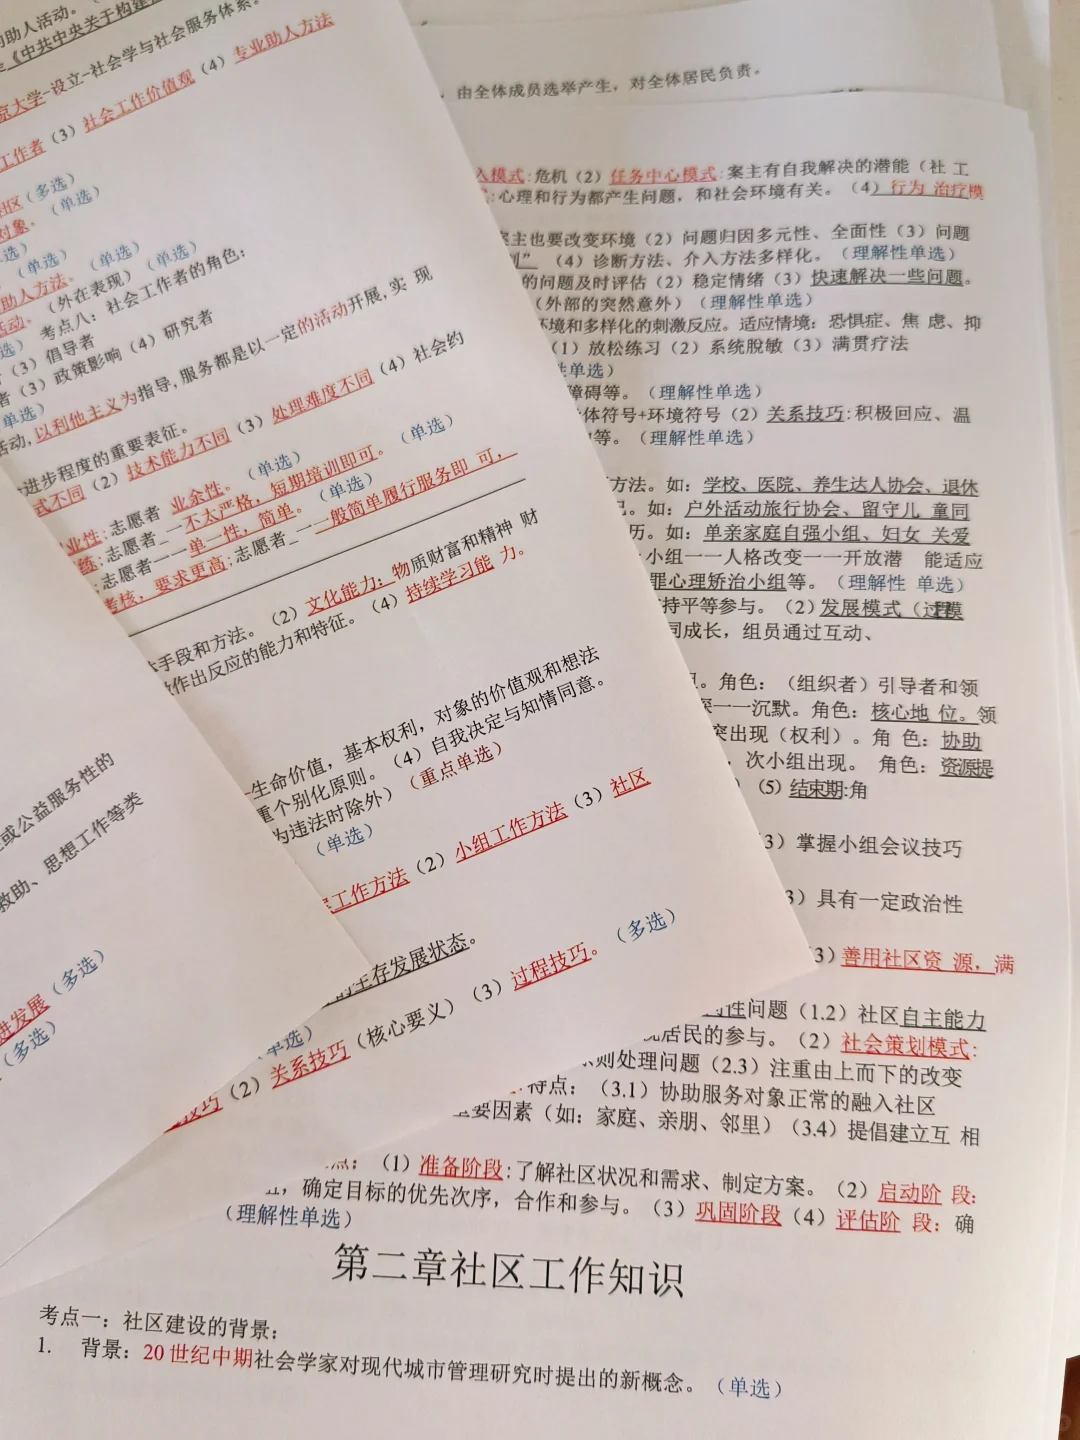 的助人活动。
《中共中央关于构建
京大学-设立-社会学与社会服务体系。
工作者（3）社会工作价值观（4）专业助人方法
（多选）
对象。（单选）
（单选）（单选）（单选）
助人方法。（外在表现）
活动。 考点八：社会工作者的角色：
（3）倡导者
者（3）政策影响（4）研究者
单选）
活动，以利他主义为指导，服务都是以一定的活动开展，实 现
进步程度的重要表征。
式不同（2）技术能力不同（3）处理难度不同（4）社会约
业性；志愿者 业余性。（单选）（单选）
练；志愿者——不太严格，短期培训即可。
志愿者——单一性，简单。（单选）
考核，要求更高；志愿者——一般简单履行服务即 可，
手段和方法。（2）文化能力：物质财富和精神 财
作出反应的能力和特征。（4）持续学习能 力。
生命价值，基本权利，对象的价值观和想法
重个别化原则。（4）自我决定与知情同意。
为违法时除外）（重点单选）
（单选）
工作方法（2）小组工作方法（3）社区
的生存发展状态。
（2）关系技巧（核心要义）（3）过程技巧。（多选）
或公益服务性的
救助、思想工作等类
进发展（多选）
（多选）
由全体成员选举产生，对全体居民负责。
入模式：危机（2）任务中心模式：案主有自我解决的潜能（社 工
：心理和行为都产生问题，和社会环境有关。（4）行为 治疗模
案主也要改变环境（2）问题归因多元性、全面性（3）问题
（4）诊断方法、介入方法多样化。（理解性单选）
的问题及时评估（2）稳定情绪（3）快速解决一些问题。
（外部的突然意外）（理解性单选）
环境和多样化的刺激反应。适应情境：恐惧症、焦 虑、抑
（1）放松练习（2）系统脱敏（3）满贯疗法
性单选）
障碍等。（理解性单选）
体符号+环境符号（2）关系技巧：积极回应、温
等。（理解性单选）
方法。如：学校、医院、养生达人协会、退休
如：户外活动旅行协会、留守儿 童同
历。如：单亲家庭自强小组、妇女 关爱
小组——人格改变——开放潜 能适应
罪心理矫治小组等。（理解性 单选）
持平等参与。（2）发展模式（过程模
同成长，组员通过互动、
角色：（组织者）引导者和领
探——沉默。角色：核心地 位。领
突出现（权利）。角 色：协助
，次小组出现。 角色：资源提
（5）结束期：角
3）掌握小组会议技巧
3）具有一定政治性
3）善用社区资 源，满
性问题（1.2）社区自主能力
居民的参与。（2）社会策划模式：
则处理问题（2.3）注重由上而下的改变
特点：（3.1）协助服务对象正常的融入社区
要因素（如：家庭、亲朋、邻里）（3.4）提倡建立互 相
（1）准备阶段：了解社区状况和需求、制定方案。（2）启动阶 段：
，确定目标的优先次序，合作和参与。（3）巩固阶段（4）评估阶 段：确
（理解性单选）
第二章社区工作知识
考点一：社区建设的背景：
1. 背景：20世纪中期社会学家对现代城市管理研究时提出的新概念。（单选）